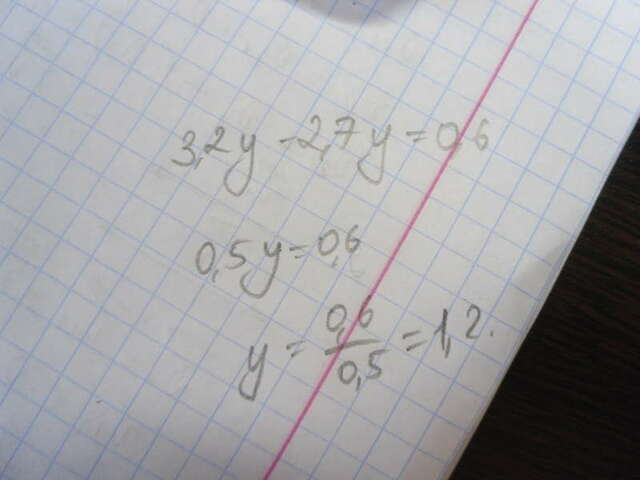 3,2y - 2,7y = 0,6
0,5y = 0,6
y = 0,6/0,5 = 1,2.